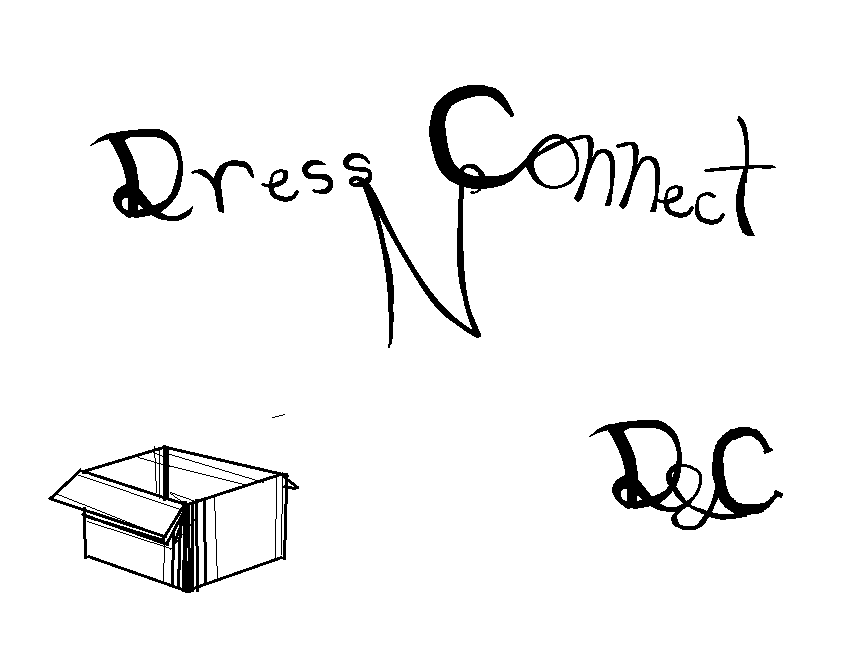 Dress N Connect
D&C